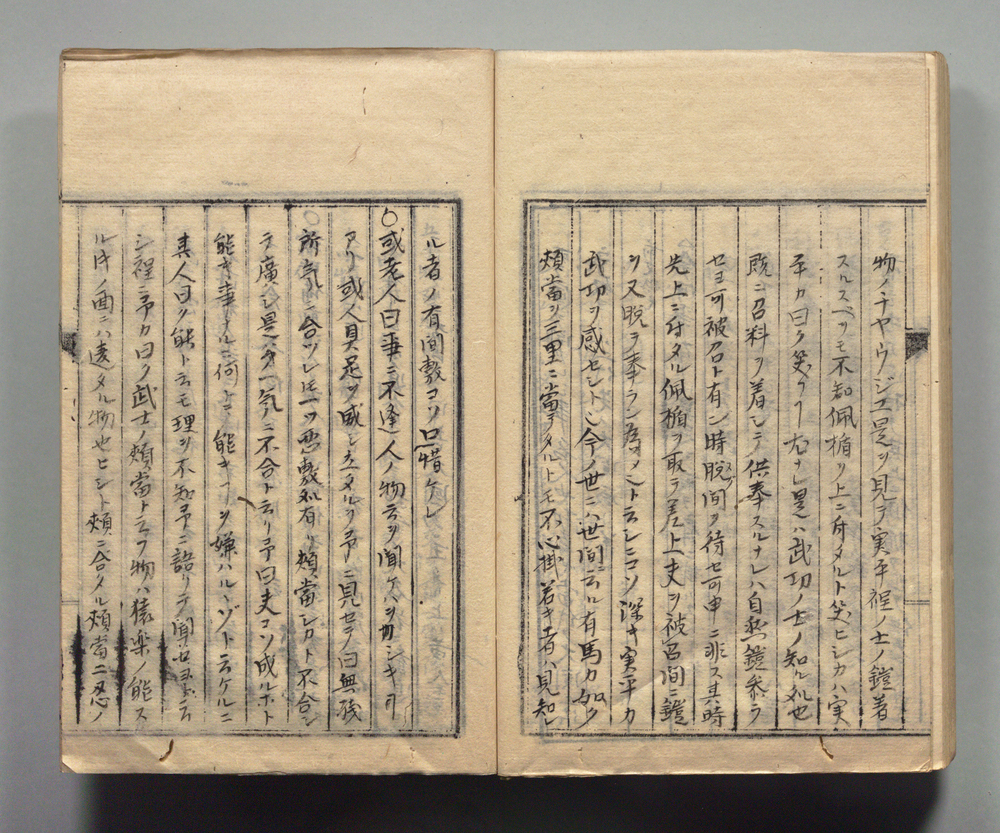 物ノチヤウジヱ是ヲ見テ実平程ノ士ノ鎧着
スルスヘヲモ不知佩楯ノ上ニ付タルト笑ヒシカハ実
平カ曰ク笑フヿ尤ナレ是ハ武功ノ士ノ知ル処也
既ニ召料ヲ着シテ供奉スルナレハ自然鎧参ラ
セヨ可被召ト有ン時脱間ヲ待セ可申ニ非ス其時
先上ニ付タル佩楯ヲ取テ差上夫ヲ被召間ニ鎧
ヲ又脱テ奉ラン為メトニシニコソ深キ実平カ
武功ヲ感セント也今ノ世ニハ世間ニ云ル有馬カ如ク
頬當ヲ三里ニ當タルトモ不心掛若キ者ハ見知レ
ル者ノ有間敷コソ口惜ケレ
○或老人曰事ニ不逢人ノ物云ヲ聞ケハヲカシキヿ
アリ或人具足ヲ威シ立タルヲ予ニ見セテ曰無残
○所気ニ合ツレ𪜈一ツ悪敷処有リ頬當シカト不合シ
テ廣シ是ハタ一気ニ不合ト云リ予曰夫コソ成ルホト
能キ事ナルニ何トテ能キヿヲ嫌ハルヽゾト云ケルニ
其人曰ク能トニモ理ヲ不知予ニ語リテ聞セヨト云
シ程ニ予カ曰ク武士ノ頬當ト云フ物ハ猿楽ノ能ス
ル時ノ面ニハ違タル物也ヒシト頬ニ合タル頬當ニ忍ノ